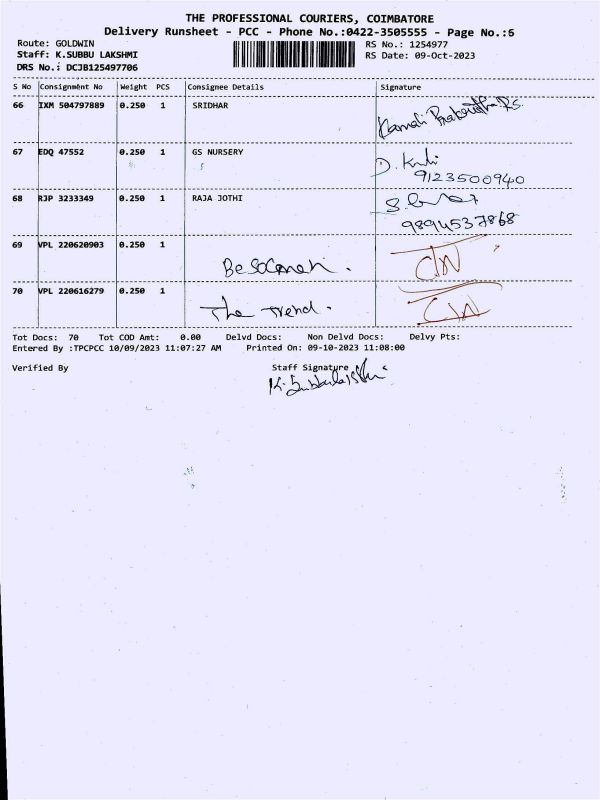 THE PROFESSIONAL COURIERS, COIMBATORE
Delivery Runsheet - PCC - Phone No.:0422-3505555 - Page No.:6
Route: GOLDWIN RS No.: 1254977
Staff: K.SUBBU LAKSHMI RS Date: 09-Oct-2023
DRS No.: DCJB125497706
S No Consignment No Weight PCS Consignee Details Signature
66 IXM 504797889 0.250 1 SRIDHAR
67 EDQ 47552 0.250 1 GS NURSERY
9123500940
68 RJP 3233349 0.250 1 RAJA JOTHI
9894537868
69 VPL 220620903 0.250 1
70 VPL 220616279 0.250 1 The Trend.
Tot Docs: 70 Tot COD Amt: 0.00 Delvd Docs: Non Delvd Docs: Delvy Pts:
Entered By :TPCPCC 10/09/2023 11:07:27 AM Printed On: 09-10-2023 11:08:00
Verified By Staff Signature